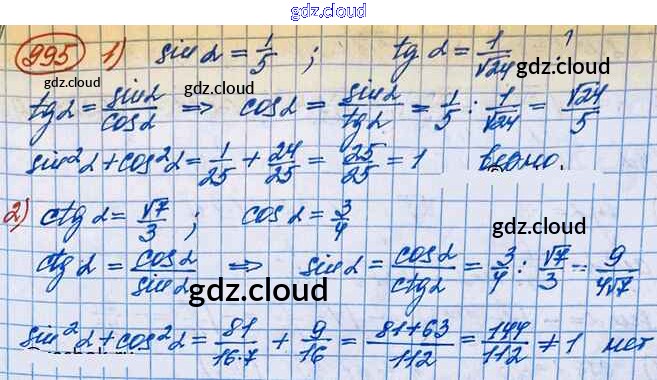 gdz.cloud
995 1) sin α = 1/5 ; tg α = 1/√24 ?
gdz.cloud gdz.cloud
tg α = sin α/cos α ⇒ cos α = sin α/tg α = 1/5 : 1/√24 = √24/5
sin²α + cos²α = 1/25 + 24/25 = 25/25 = 1 верно.
2) ctg α = √7/3 ; cos α = 3/4
gdz.cloud
ctg α = cos α/sin α ⇒ sin α = cos α/ctg α = 3/4 : √7/3 = 9/4√7
gdz.cloud
sin²α + cos²α = 81/16·7 + 9/16 = 81+63/112 = 144/112 ≠ 1 нет